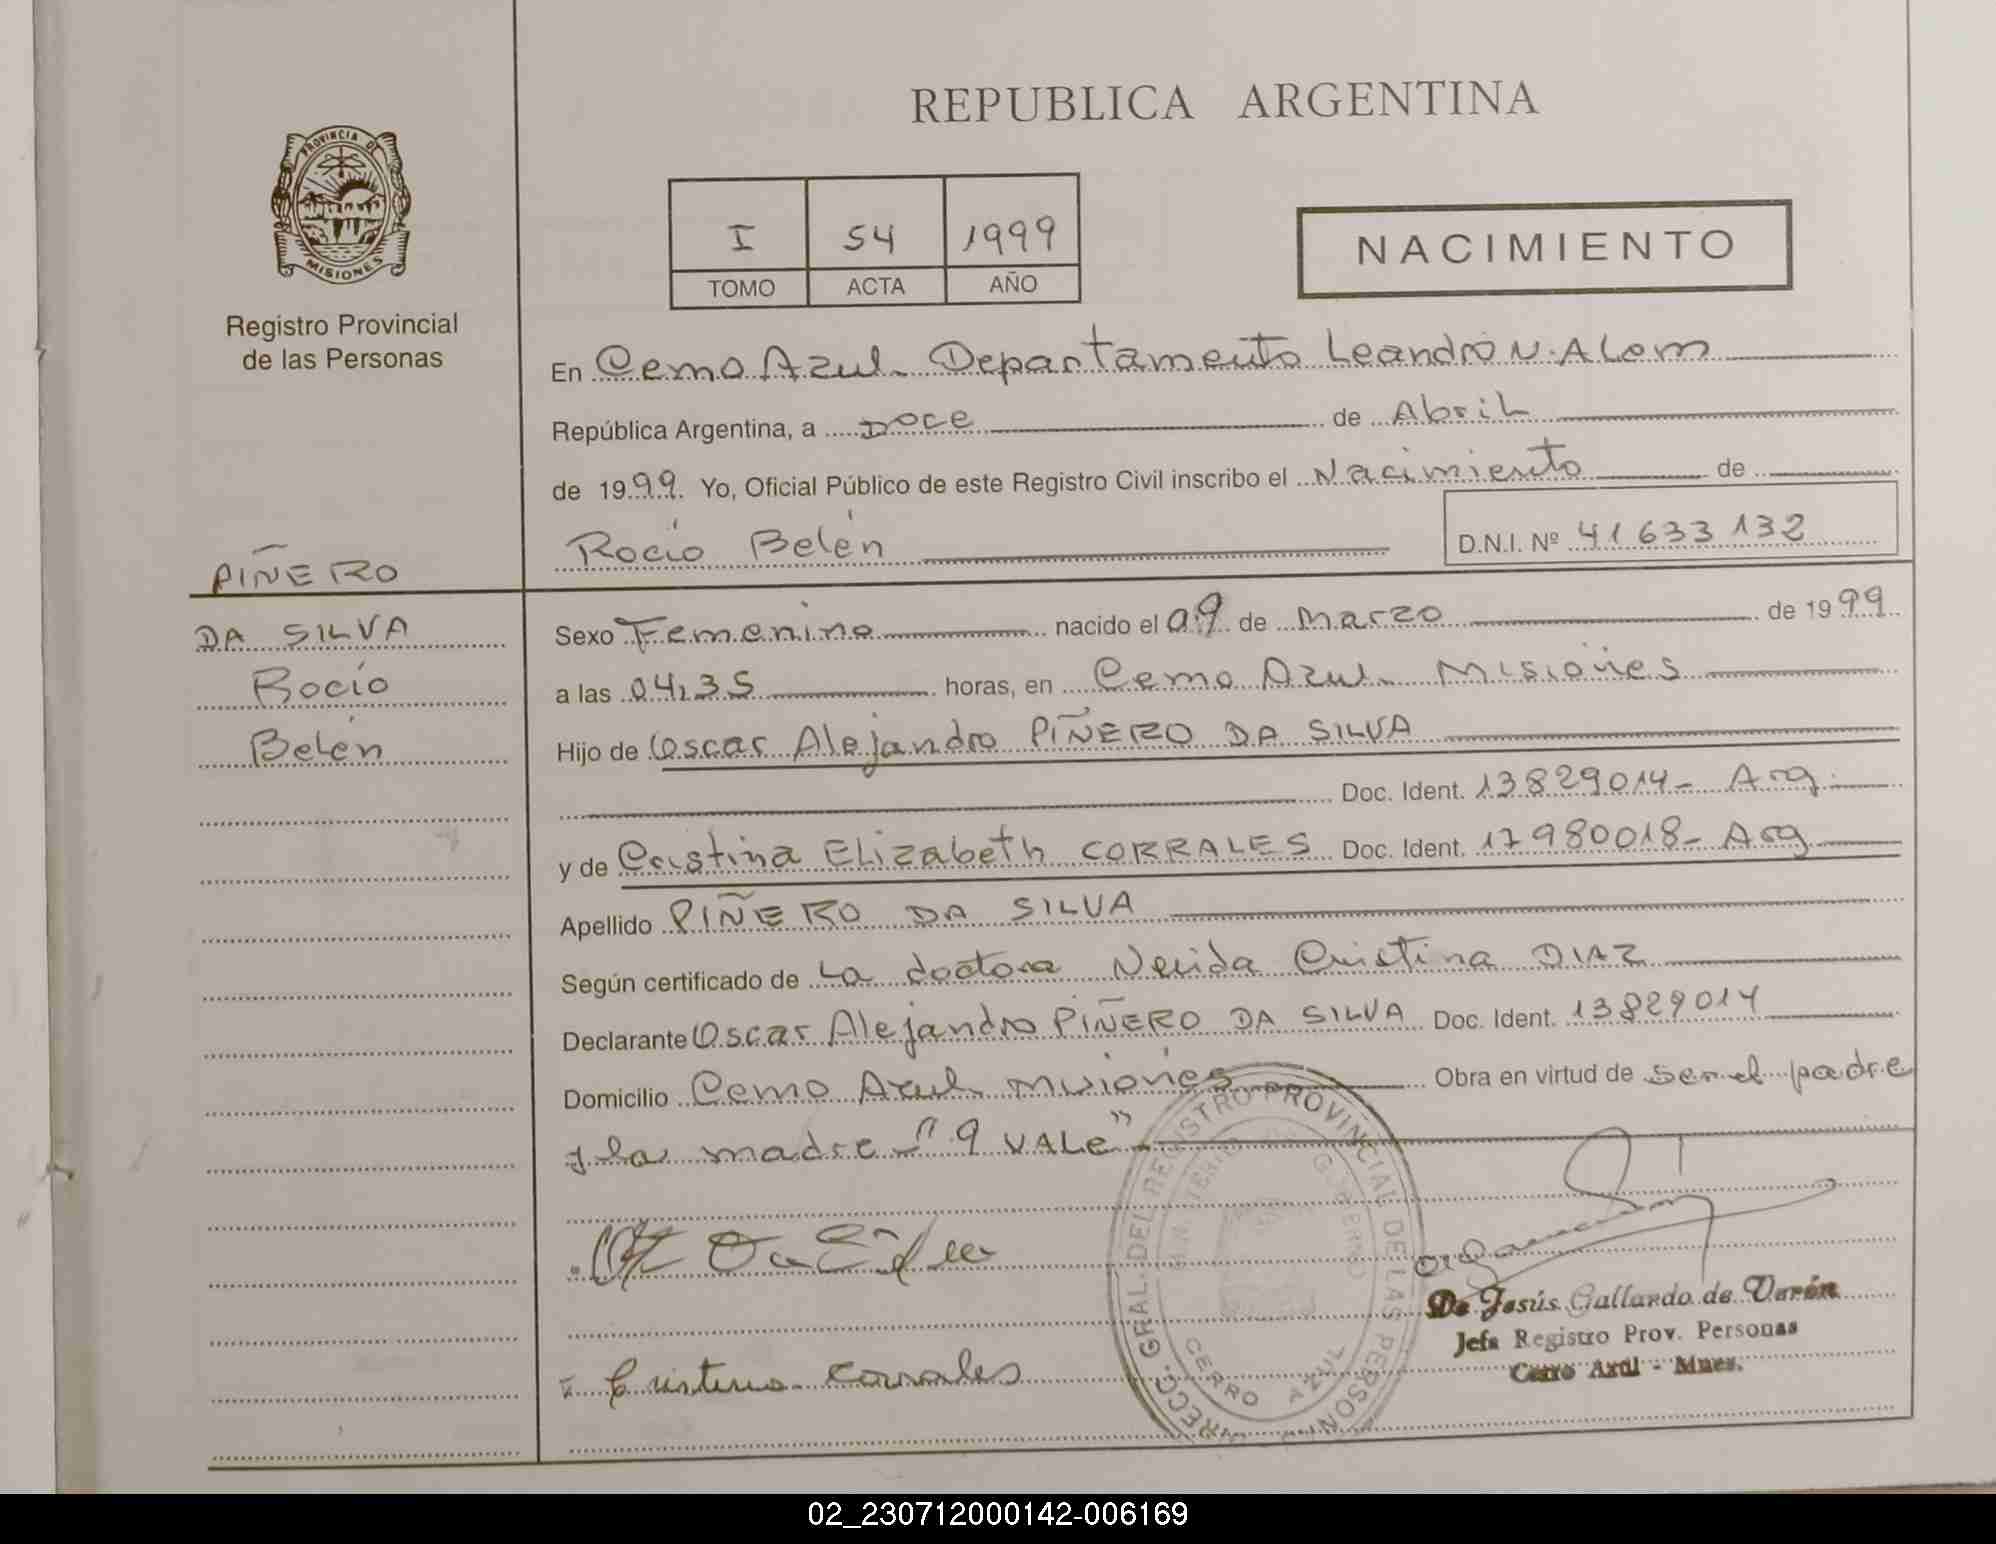 REPUBLICA ARGENTINA
PROVINCIA DE
MISIONES
Registro Provincial
de las Personas
I 54 1999
TOMO ACTA AÑO
NACIMIENTO
En Cerro Azul. Departamento Leandro N. Alem
República Argentina, a Doce de Abril
de 1999. Yo, Oficial Público de este Registro Civil inscribo el Nacimiento de
Rocío Belén D.N.I. Nº 41 633 132
PIÑERO
DA SILVA
Rocío
Belén
Sexo Femenino nacido el 09 de Marzo de 1999
a las 04,35 horas, en Cerro Azul. Misiones
Hijo de Oscar Alejandro PIÑERO DA SILVA
Doc. Ident. 13829014- Arg.
y de Cristina Elizabeth CORRALES Doc. Ident. 17980018- Arg
Apellido PIÑERO DA SILVA
Según certificado de La doctora Nerida Cristina DIAZ
Declarante Oscar Alejandro PIÑERO DA SILVA Doc. Ident. 13829014
Domicilio Cerro Azul Misiones Obra en virtud de ser el padre
y la madre - "9 VALE"
Cristina Corrales
DIRECC. GRAL. DEL REGISTRO PROVINCIAL DE LAS PERSONAS
CERRO AZUL
De Jesús Gallardo de Varón
Jefa Registro Prov. Personas
Cerro Azul - Mnes.
02_230712000142-006169